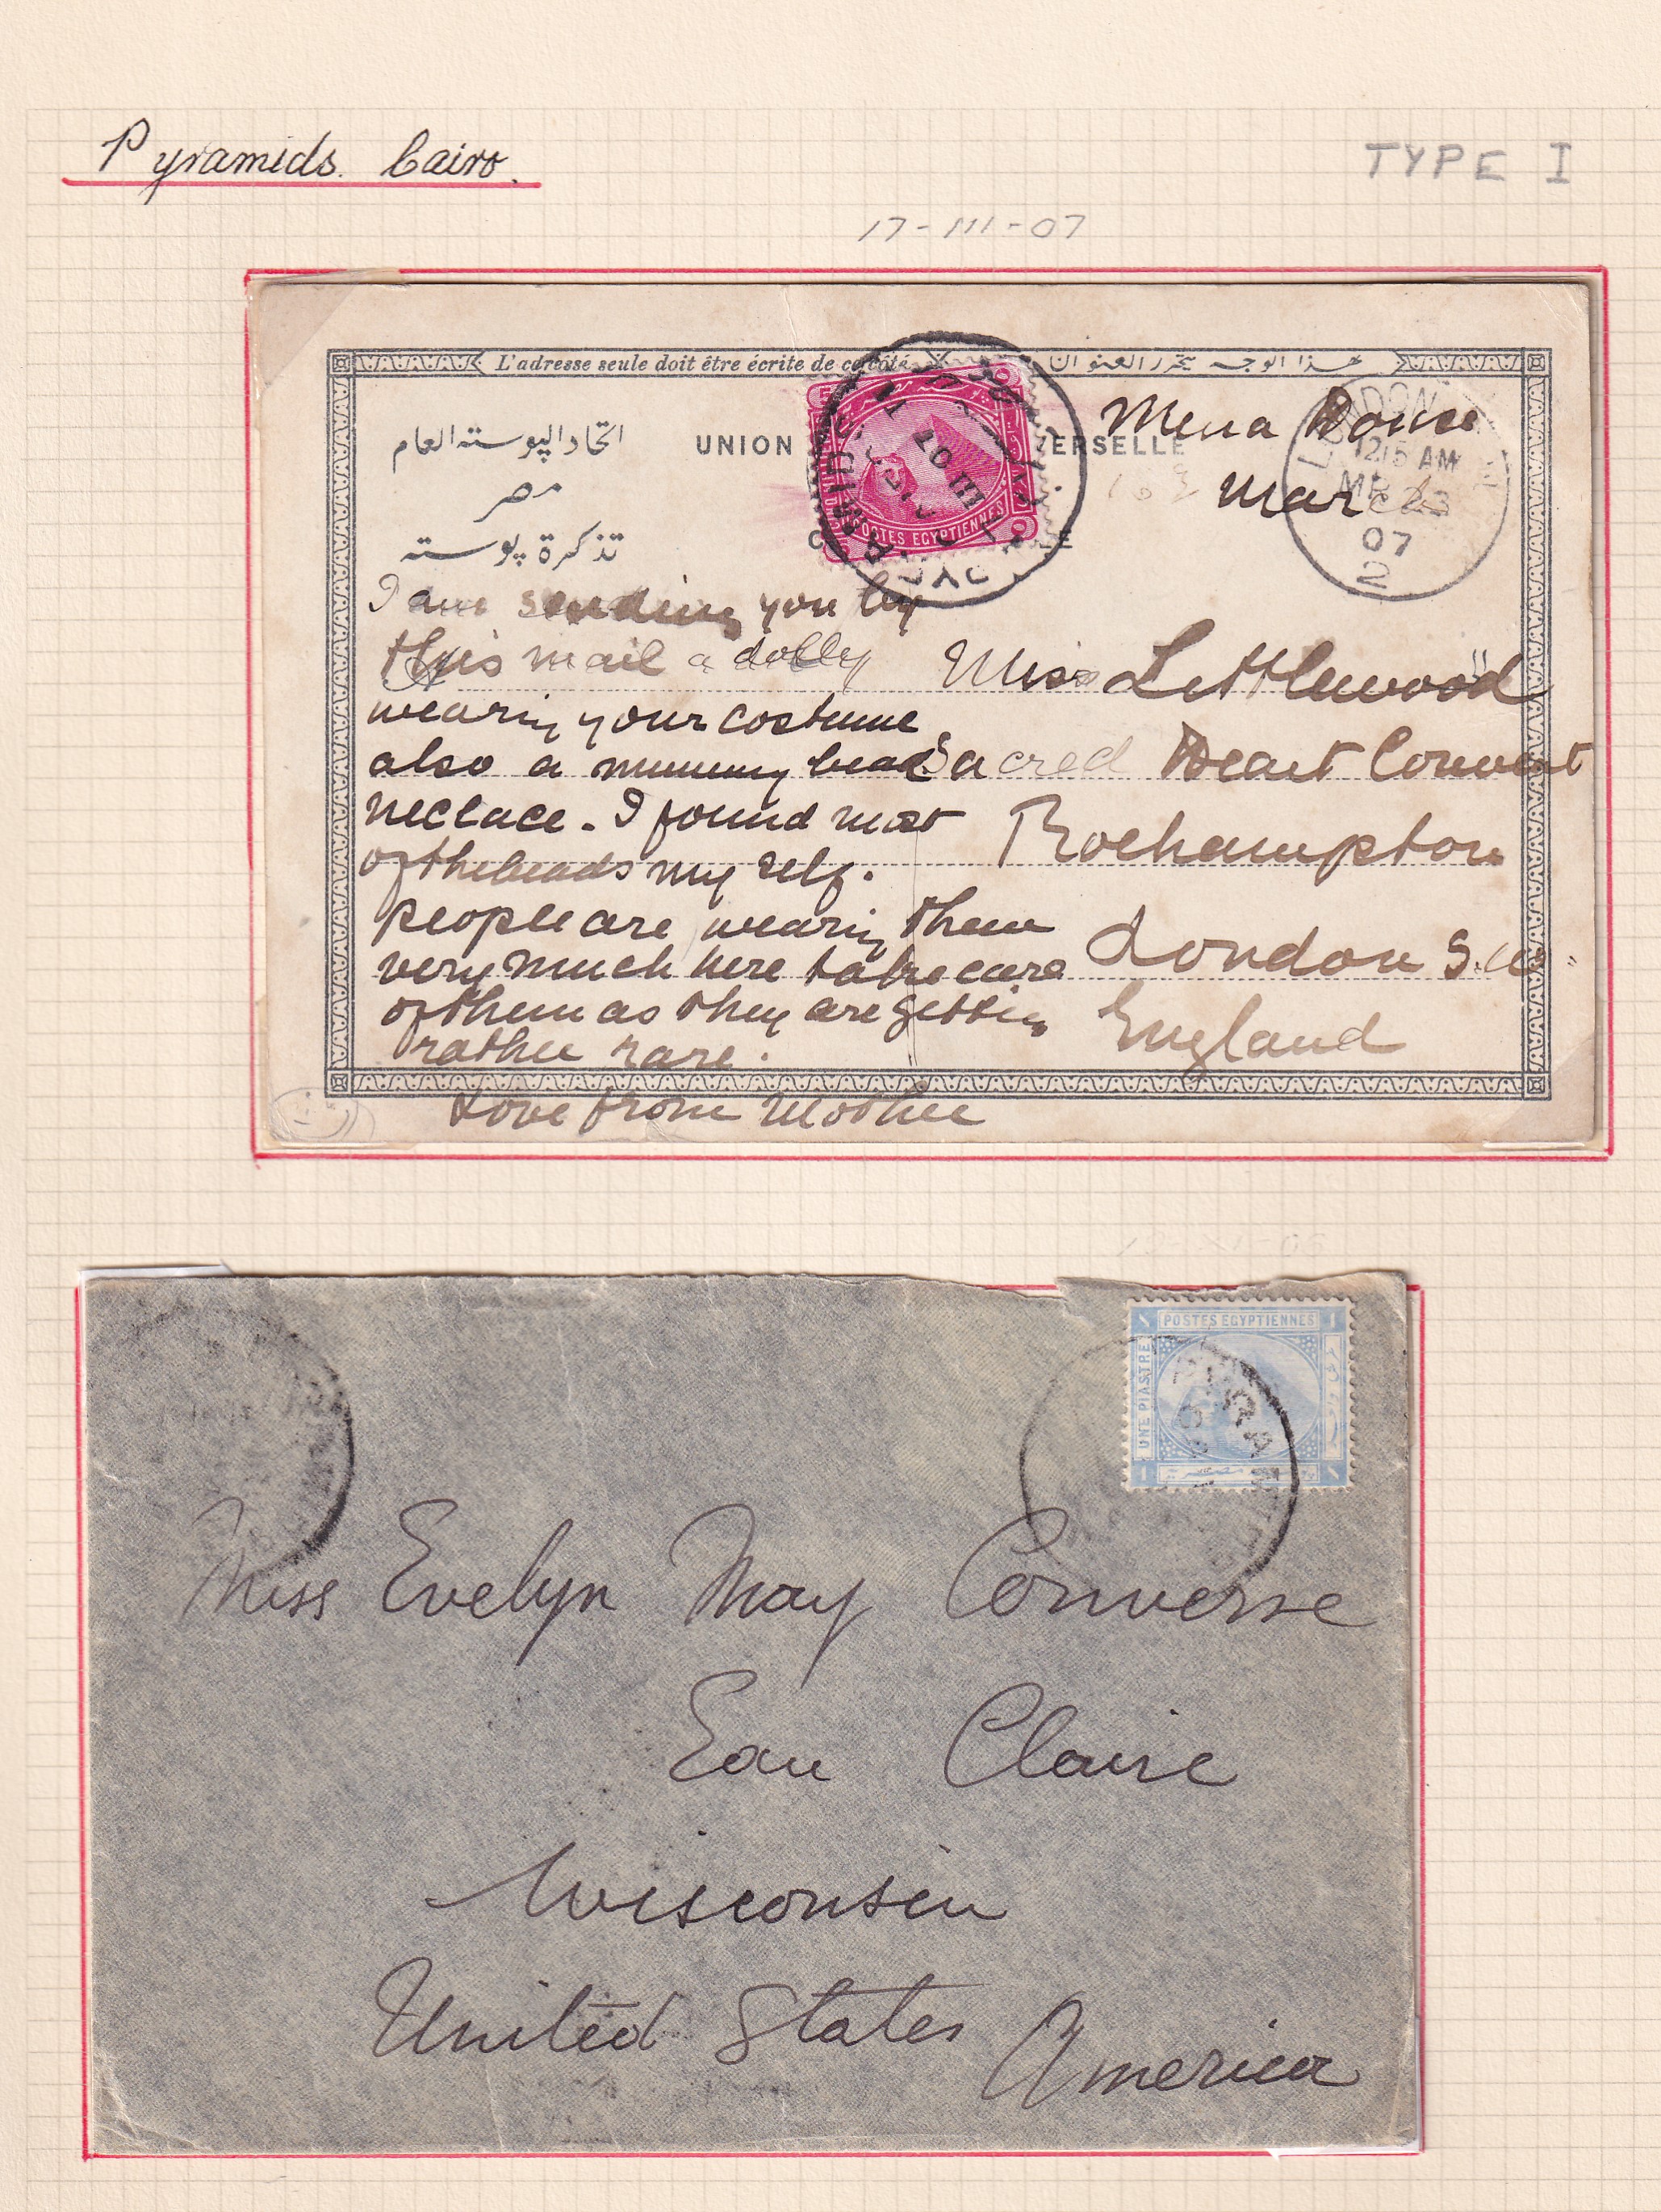 Pyramids. Cairo.
TYPE I
17-III-07
L'adresse seule doit être écrite de ce côté
هذا الوجه يحرر العنوان
اتحاد البوسته العام
مصر
تذكرة بوسته
UNION ERSELLE
POSTES EGYPTIENNES
PYRAMIDS
III 07
LONDON
12.15 AM
MR 23
07
Mena House
March
I am sending you by
this mail a dolly
wearing your costume
also a mummy bead
neclace. I found most
of the beads my self.
people are wearing them
very much here take care
of them as they are getting
rather rare.
Love from Mother
Miss Littlewood
Sacred Heart Convent
Roehampton
London S.W.
England
POSTES EGYPTIENNES
UNE PIASTRE
PYRAMIDS
Miss Evelyn May Converse
Eau Claire
Wisconsin
United States America